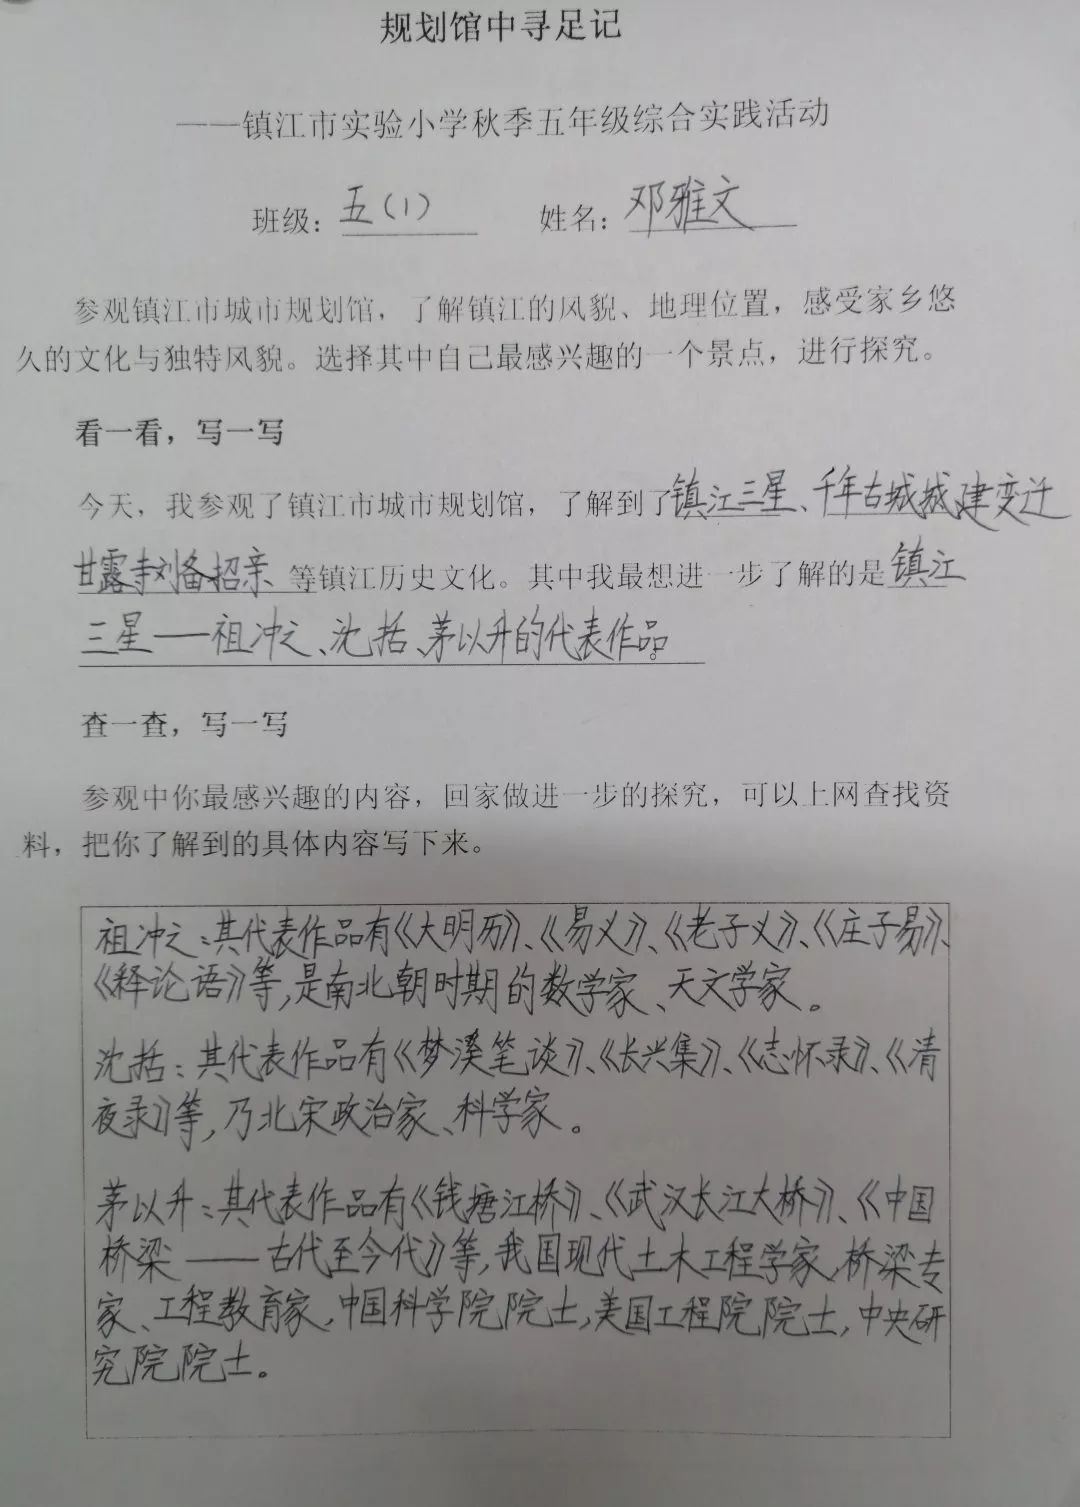 规划馆中寻足记
——镇江市实验小学秋季五年级综合实践活动
班级：五（1） 姓名：邓雅文
参观镇江市城市规划馆，了解镇江的风貌、地理位置，感受家乡悠
久的文化与独特风貌。选择其中自己最感兴趣的一个景点，进行探究。
看一看，写一写
今天，我参观了镇江市城市规划馆，了解到了镇江三星、千年古城城建变迁
甘露寺刘备招亲 等镇江历史文化。其中我最想进一步了解的是镇江
三星——祖冲之、沈括、茅以升的代表作品。
查一查，写一写
参观中你最感兴趣的内容，回家做进一步的探究，可以上网查找资
料，把你了解到的具体内容写下来。
祖冲之：其代表作品有《大明历》、《易义》、《老子义》、《庄子易》、
《释论语》等，是南北朝时期的数学家、天文学家。
沈括：其代表作品有《梦溪笔谈》、《长兴集》、《志怀录》、《清
夜录》等，乃北宋政治家、科学家。
茅以升：其代表作品有《钱塘江桥》、《武汉长江大桥》、《中国
桥梁——古代至今代》等，我国现代土木工程学家，桥梁专
家、工程教育家，中国科学院院士，美国工程院院士，中央研
究院院士。